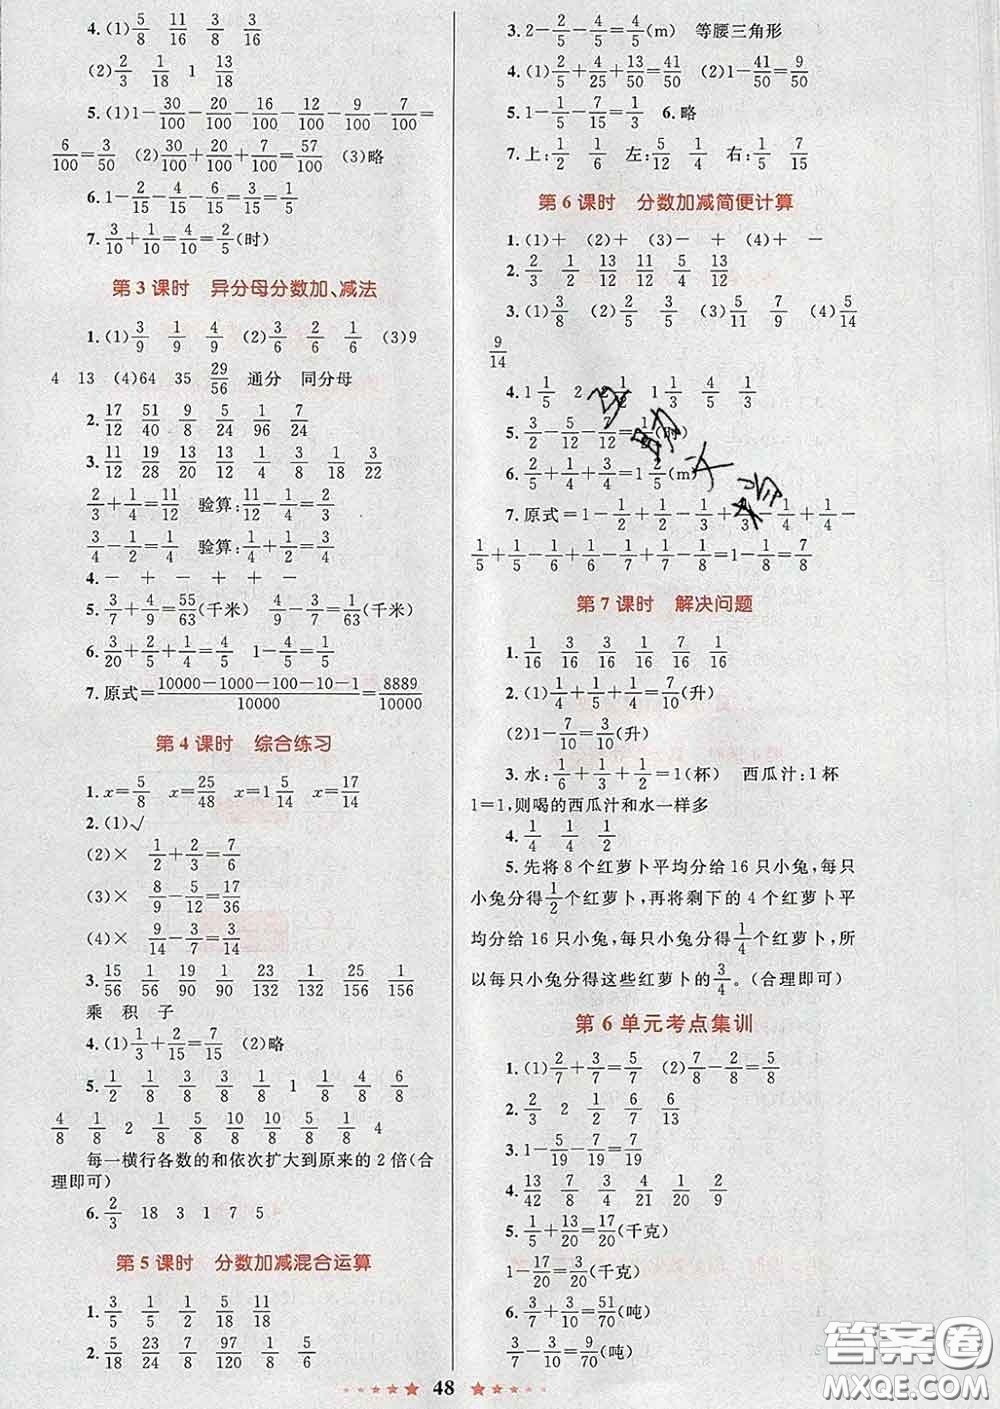 4.(1)5/8 11/16 3/8 3/16
(2)2/3 1/18 1 13/18
5.(1)1-30/100-20/100-16/100-12/100-9/100-7/100=
6/100=3/50 (2)30/100+20/100+7/100=57/100 (3)略
6.1-2/15-4/15-6/15=3/15=1/5
7.3/10+1/10=4/10=2/5(时)
第 3 课时 异分母分数加、减法
1.(1)3/9 1/9 4/9 (2)3/6 2/6 1/6 (3)9
4 13 (4)64 35 29/56 通分 同分母
2.17/12 51/40 9/8 5/24 1/96 7/24
3.11/12 19/28 13/20 13/12 1/4 3/8 1/18 3/22
2/3+1/4=11/12 验算:11/12-1/4=2/3
3/4-1/2=1/4 验算:1/4+1/2=3/4
4.- + - + -
5.3/7+4/9=55/63(千米) 4/9-3/7=1/63(千米)
6.3/20+2/5+1/4=4/5 1-4/5=1/5
7.原式=10000-1000-100-10-1/10000=8889/10000
第 4 课时 综合练习
1.x=5/8 x=25/48 x=1 5/14 x=17/14
2.(1)√
(2)× 1/2+2/3=7/6
(3)× 8/9-5/12=17/36
(4)× 9/14-3/7=3/14
3.15/56 1/56 19/90 1/90 23/132 1/132 25/156 1/156
乘 积 子
4.(1)1/3+2/15=7/15 (2)略
5.1/2 1/8 5/8 3/8 1/8 1 1/8 4/8 6/8
4/8 1/8 2 1/8 5/8 10/8 10/8 5/8 1/8 4
每一横行各数的和依次扩大到原来的 2 倍(合
理即可)
6.2/3 18 3 1 7 5
第 5 课时 分数加减混合运算
1.3/5 1/5 1/2 5/18 11/18
2.5/18 23/24 7/8 97/120 1/8 5/6
3.2-2/5-4/5=4/5(m) 等腰三角形
4.(1)2/5+4/25+13/50=41/50 (2)1-41/50=9/50
5.1-1/5-7/15=1/3 6.略
7.上:1/2 1/6 左:5/12 1/4 右:1/5 7/15
第 6 课时 分数加减简便计算
1.(1)+ (2)+ (3)- + (4)+ -
2.2/3 1/12 13/12 5/4 13/12
3.(1)3/8 (2)2/5 4/5 (3)5/11 7/9 (4)5/14
9/14
4.1 1/5 2 2 1/2 1 1/3 4/5 1/3
5.3/2-5/12-7/12=1/2(时)
6.2/5+1/4+3/4=1 2/5(m)
7.原式=1-1/2+1/2-1/3+1/3-1/4+1/4-
1/5+1/5-1/6+1/6-1/7+1/7-1/8=1-1/8=7/8
第 7 课时 解决问题
1.1/16 3/16 3/16 1/16 7/16 1/16
2.(1)1/4+1/5+1/4=7/10(升)
(2)1-7/10=3/10(升)
3.水:1/6+1/3+1/2=1(杯) 西瓜汁:1 杯
1=1,则喝的西瓜汁和水一样多
4.1/4 1/4 1/2
5.先将 8 个红萝卜平均分给 16 只小兔,每只
小兔分得1/2个红萝卜,再将剩下的 4 个红萝卜平
均分给 16 只小兔,每只小兔分得1/4个红萝卜,所
以每只小兔分得这些红萝卜的3/4。(合理即可)
第 6 单元考点集训
1.(1)2/7+3/7=5/7 (2)7/8-2/8=5/8
2.2/3 2 1/2 6/7 6/13
3.1-5/19-7/19=7/19
4.13/42 7/8 3/4 4/21 1/20 2/9
5.1/5+13/20=17/20(千克)
1-17/20=3/20(千克)
6.3/7+3/10=51/70(吨)
3/7-3/10=9/70(吨)
48
答案圈
MXQE.COM